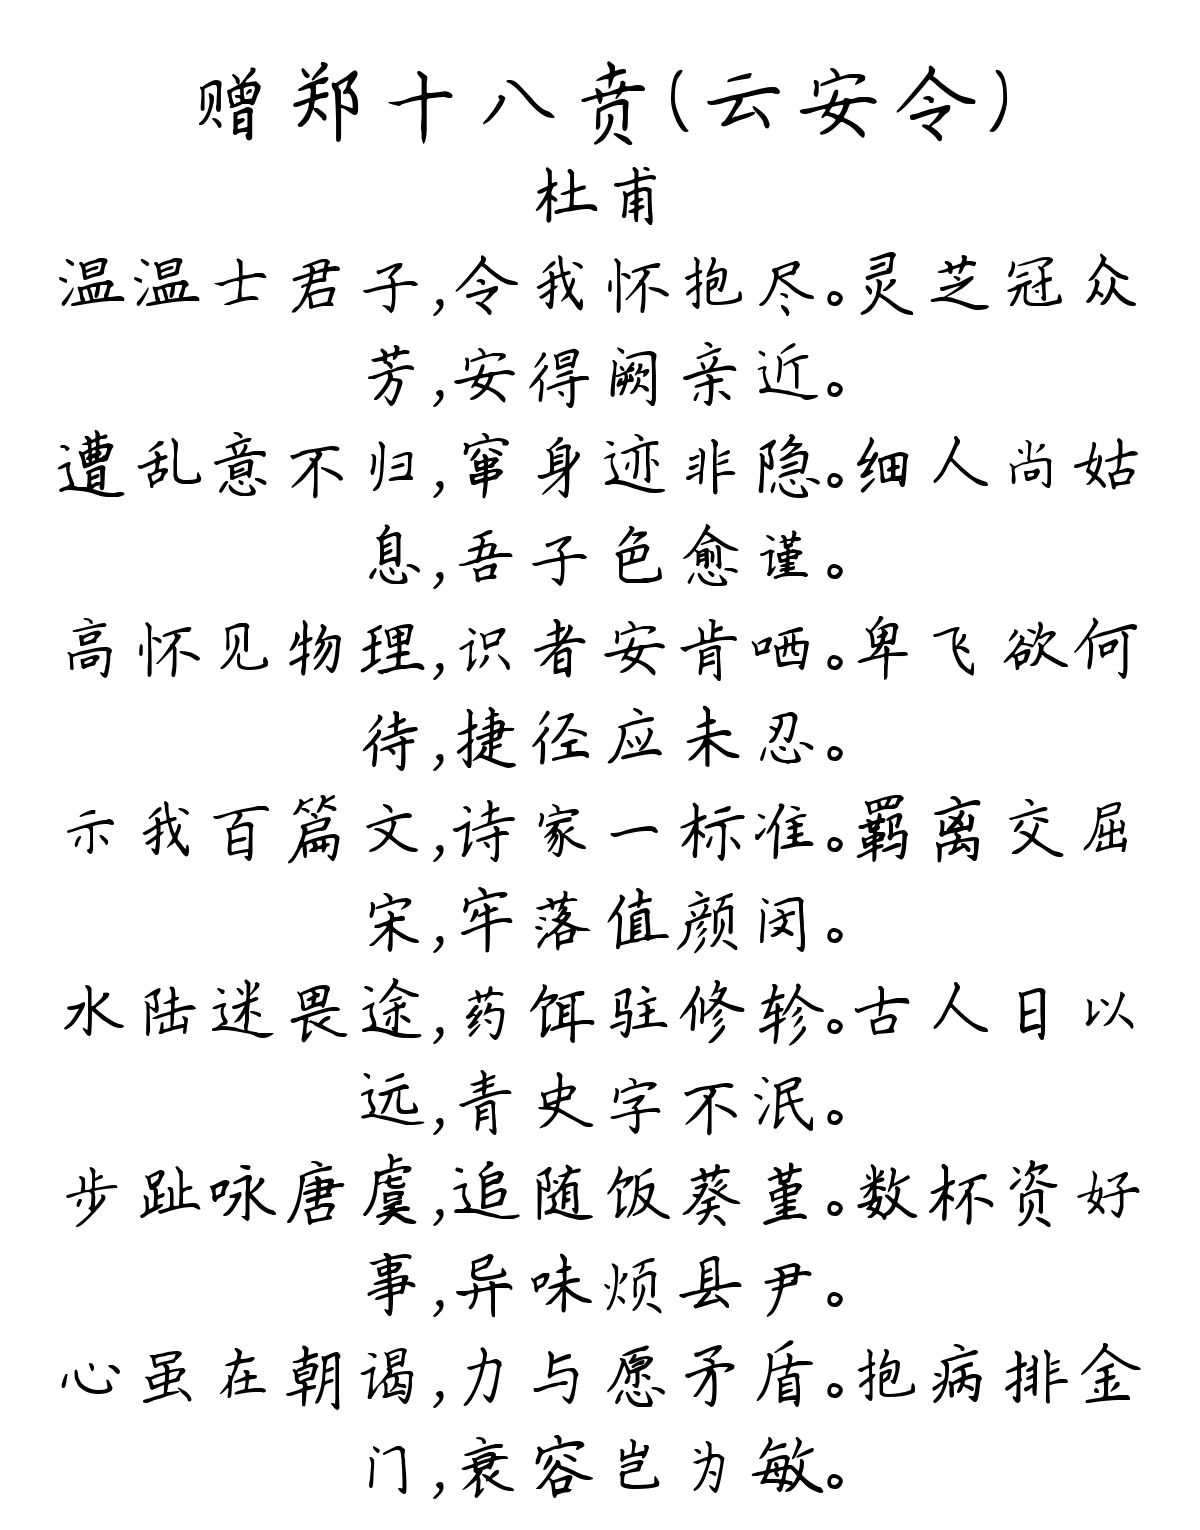 赠郑十八贲(云安令)
杜甫
温温士君子,令我怀抱尽。灵芝冠众
芳,安得阙亲近。
遭乱意不归,窜身迹非隐。细人尚姑
息,吾子色愈谨。
高怀见物理,识者安肯哂。卑飞欲何
待,捷径应未忍。
示我百篇文,诗家一标准。羁离交屈
宋,牢落值颜闵。
水陆迷畏途,药饵驻修轸。古人日以
远,青史字不泯。
步趾咏唐虞,追随饭葵堇。数杯资好
事,异味烦县尹。
心虽在朝谒,力与愿矛盾。抱病排金
门,衰容岂为敏。